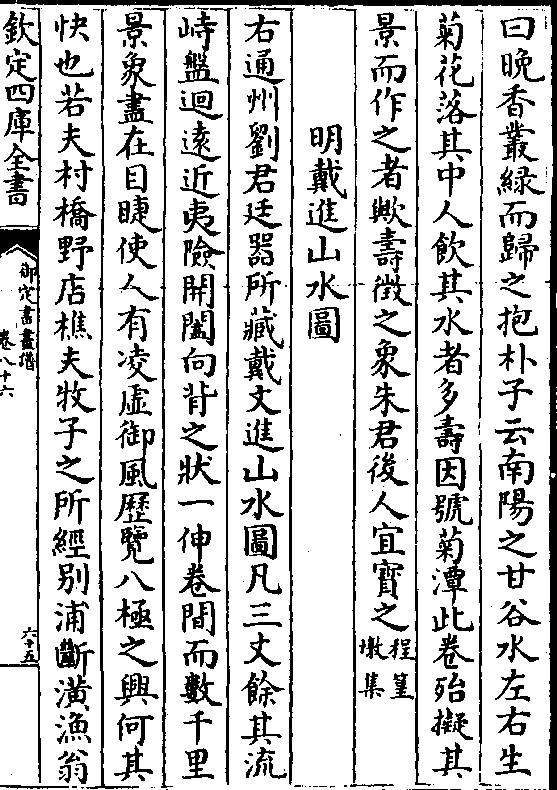 曰晚香叢緑而歸之抱朴子云南陽之甘谷水左右生
菊花落其中人飲其水者多壽因號菊潭此卷殆擬其
景而作之者歟壽徵之象朱君後人宜寳之程篁墩集
明戴進山水圖
右通州劉君廷器所藏戴文進山水圖凡三丈餘其流
峙盤迴遠近夷險開闔向背之狀一伸卷間而數千里
景象盡在目睫使人有凌虚御風歷覽八極之興何其
快也若夫村橋野店樵夫牧子之所經别浦斷潢漁翁
欽定四庫全書
御定書畫譜
卷八十六
六十五